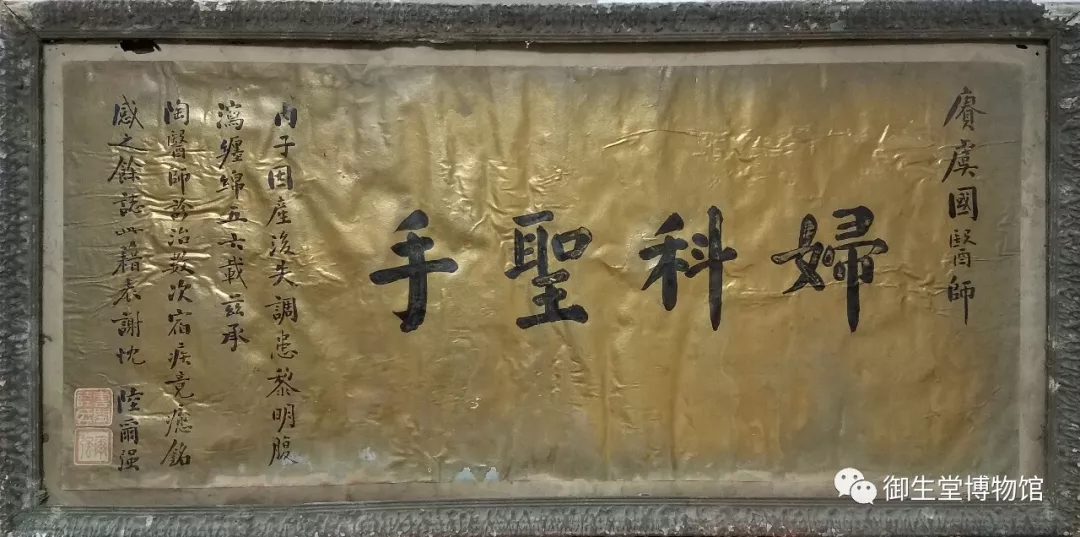 賡虞國醫師
婦科聖手
丙子因產後失調患黎明腹
瀉纏綿五六載茲承
陶醫師診治数次宿疾竟瘳銘
感之餘誌此藉表謝忱 陸爾强
御生堂博物馆